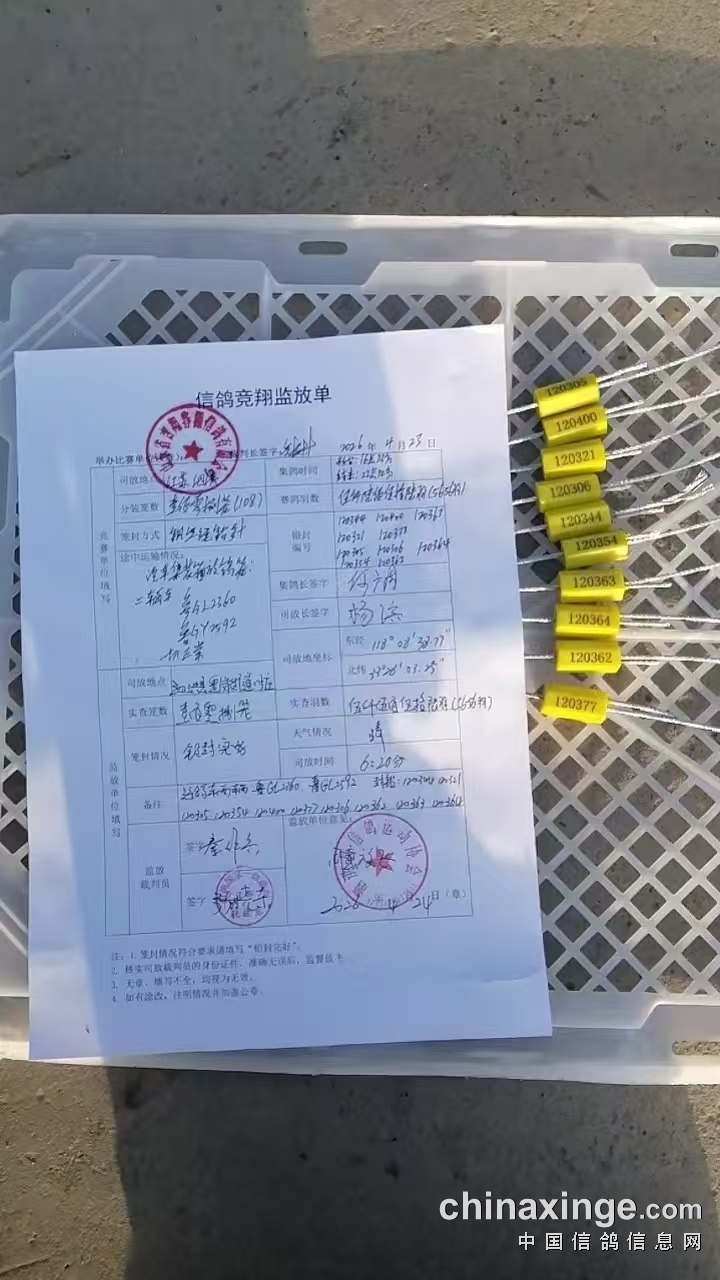 信鸽竞翔监放单
举办比赛单
判长签字
2026 年 4 月 23 日
司放地 江苏泗洪
集鸽时间
分装笼数 (108)
赛鸽羽数 (5656羽)
竞赛单位填写
笼封方式
铅封编号
120344 120400 120363
120321 120377
120305 120306 120364
120354 120362
途中运输情况:
二辆车 鲁GL2360
鲁GY2592
一切正常
集鸽长签字
司放长签字 杨滨
司放地坐标
东经 118°08′38.77"
北纬 33°26′03.25"
司放地点
实查笼数
实查羽数 (5656羽)
监放单位填写
笼封情况 铅封完好
天气情况 晴
司放时间 6:20分
备注
120305 120354 120400 120377 120306 120362 120363 120364
监放裁判员
签字
签字
监放单位意见:
2026 年 4 月 24 日(章)
注:1. 笼封情况符合要求请填写“铅封完好”。
2. 核实司放裁判员的身份证件,准确无误后,监督放飞。
3. 无章、填写不全,均视为无效。
4. 如有涂改,注明情况并加盖公章。
120305
120400
120321
120306
120344
120354
120363
120364
120362
120377
chinaxinge.com
中国信鸽信息网